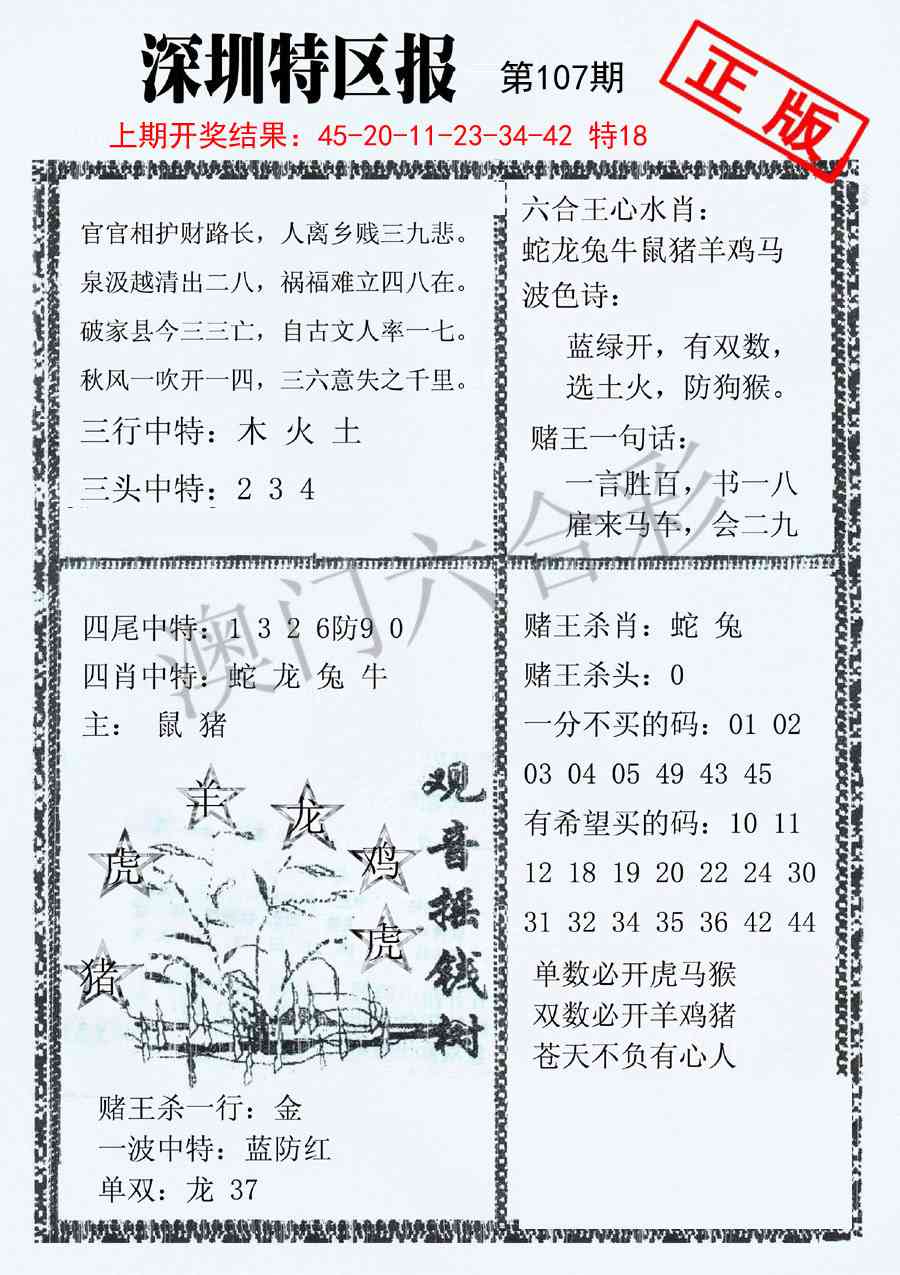 深圳特区报 第107期
正版
上期开奖结果：45-20-11-23-34-42 特18
官官相护财路长，人离乡贱三九悲。
泉汲越清出二八，祸福难立四八在。
破家县今三三亡，自古文人率一七。
秋风一吹开一四，三六意失之千里。
三行中特：木 火 土
三头中特：2 3 4
六合王心水肖：
蛇龙兔牛鼠猪羊鸡马
波色诗：
蓝绿开，有双数，
选土火，防狗猴。
赌王一句话：
一言胜百，书一八
雇来马车，会二九
澳门六合彩
四尾中特：1 3 2 6防9 0
四肖中特：蛇 龙 兔 牛
主： 鼠 猪
羊
龙
虎
鸡
虎
猪
观音摇钱树
赌王杀一行：金
一波中特：蓝防红
单双：龙 37
赌王杀肖：蛇 兔
赌王杀头：0
一分不买的码：01 02
03 04 05 49 43 45
有希望买的码：10 11
12 18 19 20 22 24 30
31 32 34 35 36 42 44
单数必开虎马猴
双数必开羊鸡猪
苍天不负有心人